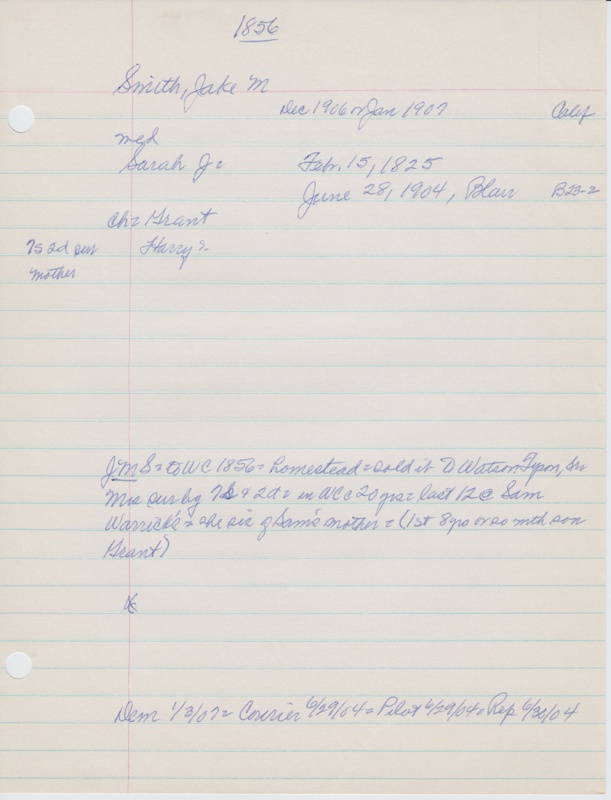 1856
Smith, Jake M
Dec 1906 or Jan 1907 Calif
mgd
Sarah J= Feb. 15, 1825
June 28, 1904, Blair B23-2
ch= Grant
7s 2d sur Harry s.
mother
JMS = to WC 1856 = homestead = sold it D Watson Tyson, Sr
Mrs sur by 7s + 2d = in WC c 20 yrs = last 12 @ Sam
Warrick's = she sis of Sam's mother = (1st 8 yrs or so with son
Grant)
Dem 1/3/07 = Courier 6/29/04 = Pilot 6/29/04 = Rep 6/30/04